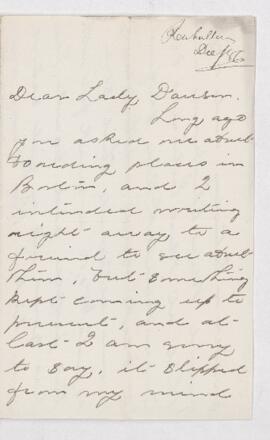 Dear Lady Dawson.
Long ago
you asked me about
boarding places in
Boston, and I
intended writing
right away to a
friend to see about
them, but something
kept coming up to
prevent, and at
last I am sorry
to say, it slipped
from my mind